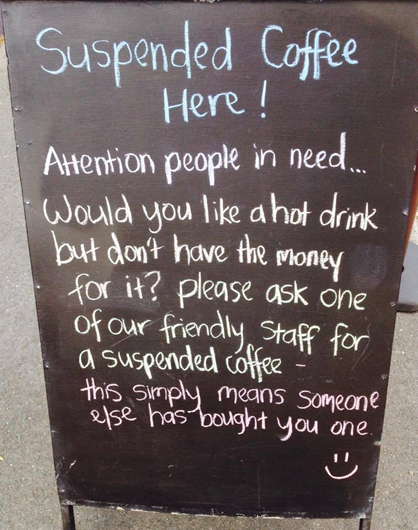 Suspended Coffee
Here!
Attention people in need...
Would you like a hot drink
but don't have the money
for it? please ask one
of our friendly staff for
a suspended coffee -
this simply means someone
else has bought you one.